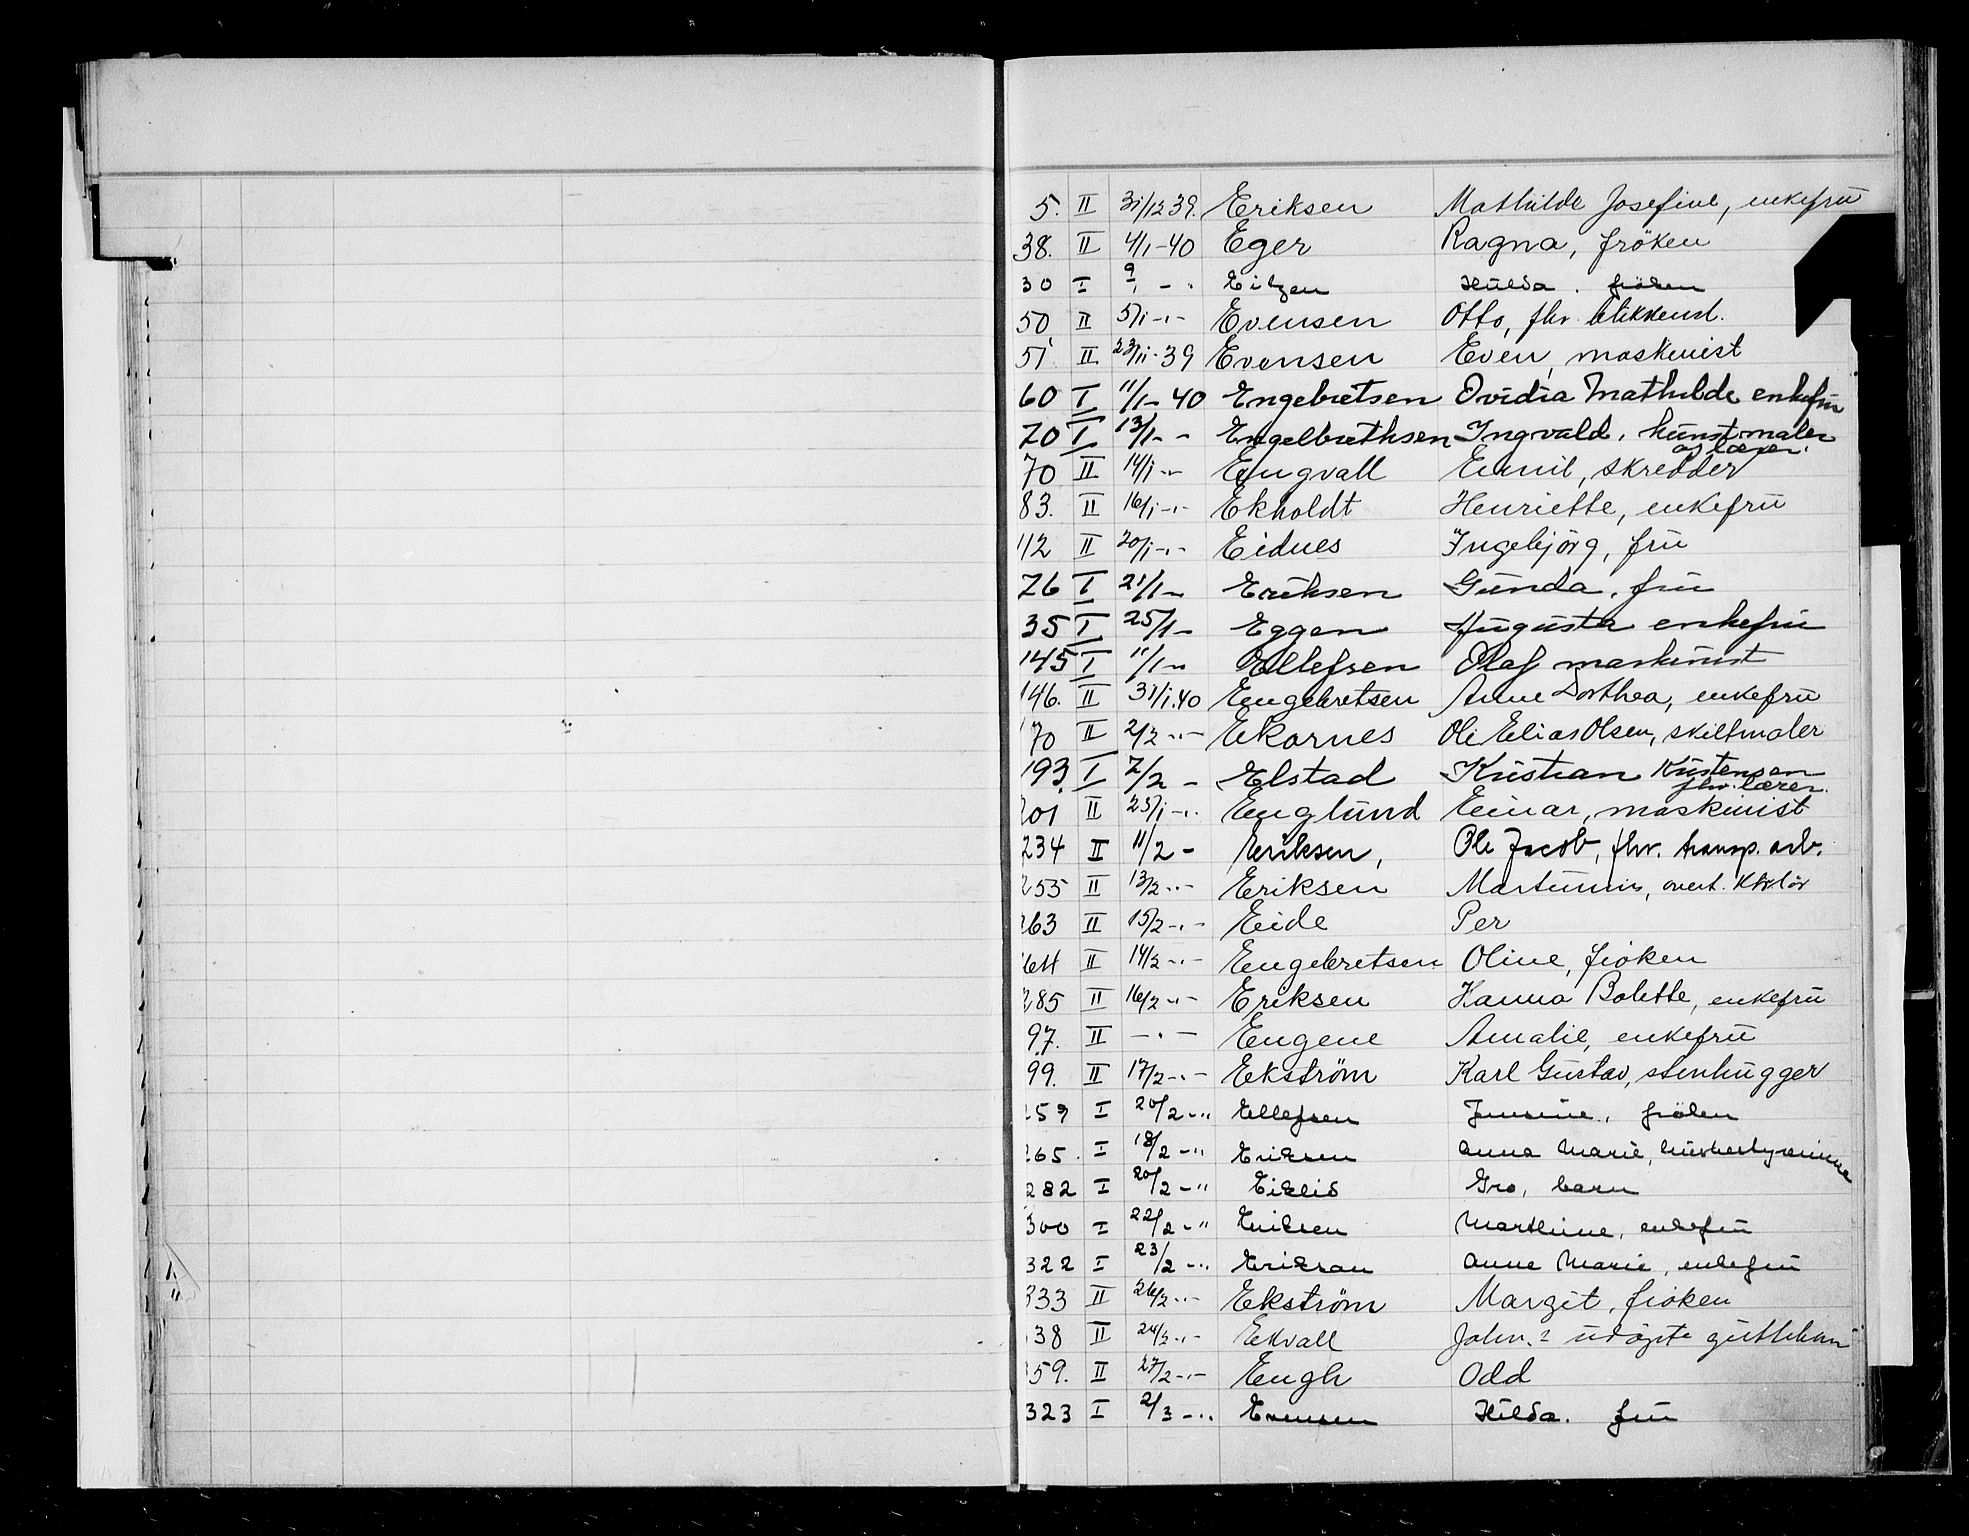 5. II 31/12 39. Eriksen Mathilde Josefine, enkefrü
38. II 4/1-40 Eger Ragna, fröken
30 I 9/1 - " Eitzen Hilda. fröken
50 II 5/1 -"- Evensen Otto, fhv. blikkensl.
51 II 23/11-39 Evensen Even, maskinist
60 I 11/1-40 Engebretsen Ovidia Mathilde enkefrü
70 I 13/1- - Engelbrethsen Ingvald, künstmaler
og lærer.
70 II 14/1 -"- Engvall Emil, skredder
83. II 16/1 -"- Ekholdt Henriette, enkefrü
112 II 20/1 -"- Eidnes Ingebjörg, frü
76 I 21/1 - Eriksen Günda, frü
35 I 25/1 - Eggen Augüsta enkefrü
145 I 11/1 - Ellefsen Olaf maskinist
146. II 31/1.40 Engebretsen Anne Dorthea, enkefrü
170 II 2/2 -"- Ekornes Ole Elias Olsen, skiltmaler
193. I 7/2 - Elstad Kristian Kristensen
fhv. lærer.
201 II 25/1 -"- Englünd Einar, maskinist
234 II 11/2 - Eriksen, Ole Jacob, fhv. transp. arb.
255 II 13/2 -"- Eriksen Martinius, overt.
263 II 15/2 -"- Eide Per
264 II 14/2 -"- Engebretsen Oline, fröken
285 II 16/2 -"- Eriksen Hanna Bolette, enkefrü
97. II -"- Engene Amalie, enkefrü
99. II 17/2 -"- Ekström Karl Güstav, stenhügger
259 I 20/2 -" Ellefsen Jensine, fröken
265. I 18/2 -" Eriksen Anna Marie, hüsbestyrerinne
282 I 20/2 -" Eiklid Gro, barn
300 I 22/2 -" Eriksen Marthine, enkefrü
322 I 23/2 -" Eriksen Anne Marie, enkefrü
333 II 26/2 -"- Ekström Margit, fröken
338 II 24/2 -"- Ekvall John. 2 üdöpte güttebarn
359. II 27/2 -"- Engh Odd
323 I 2/3 -" Evensen Hilda. frü